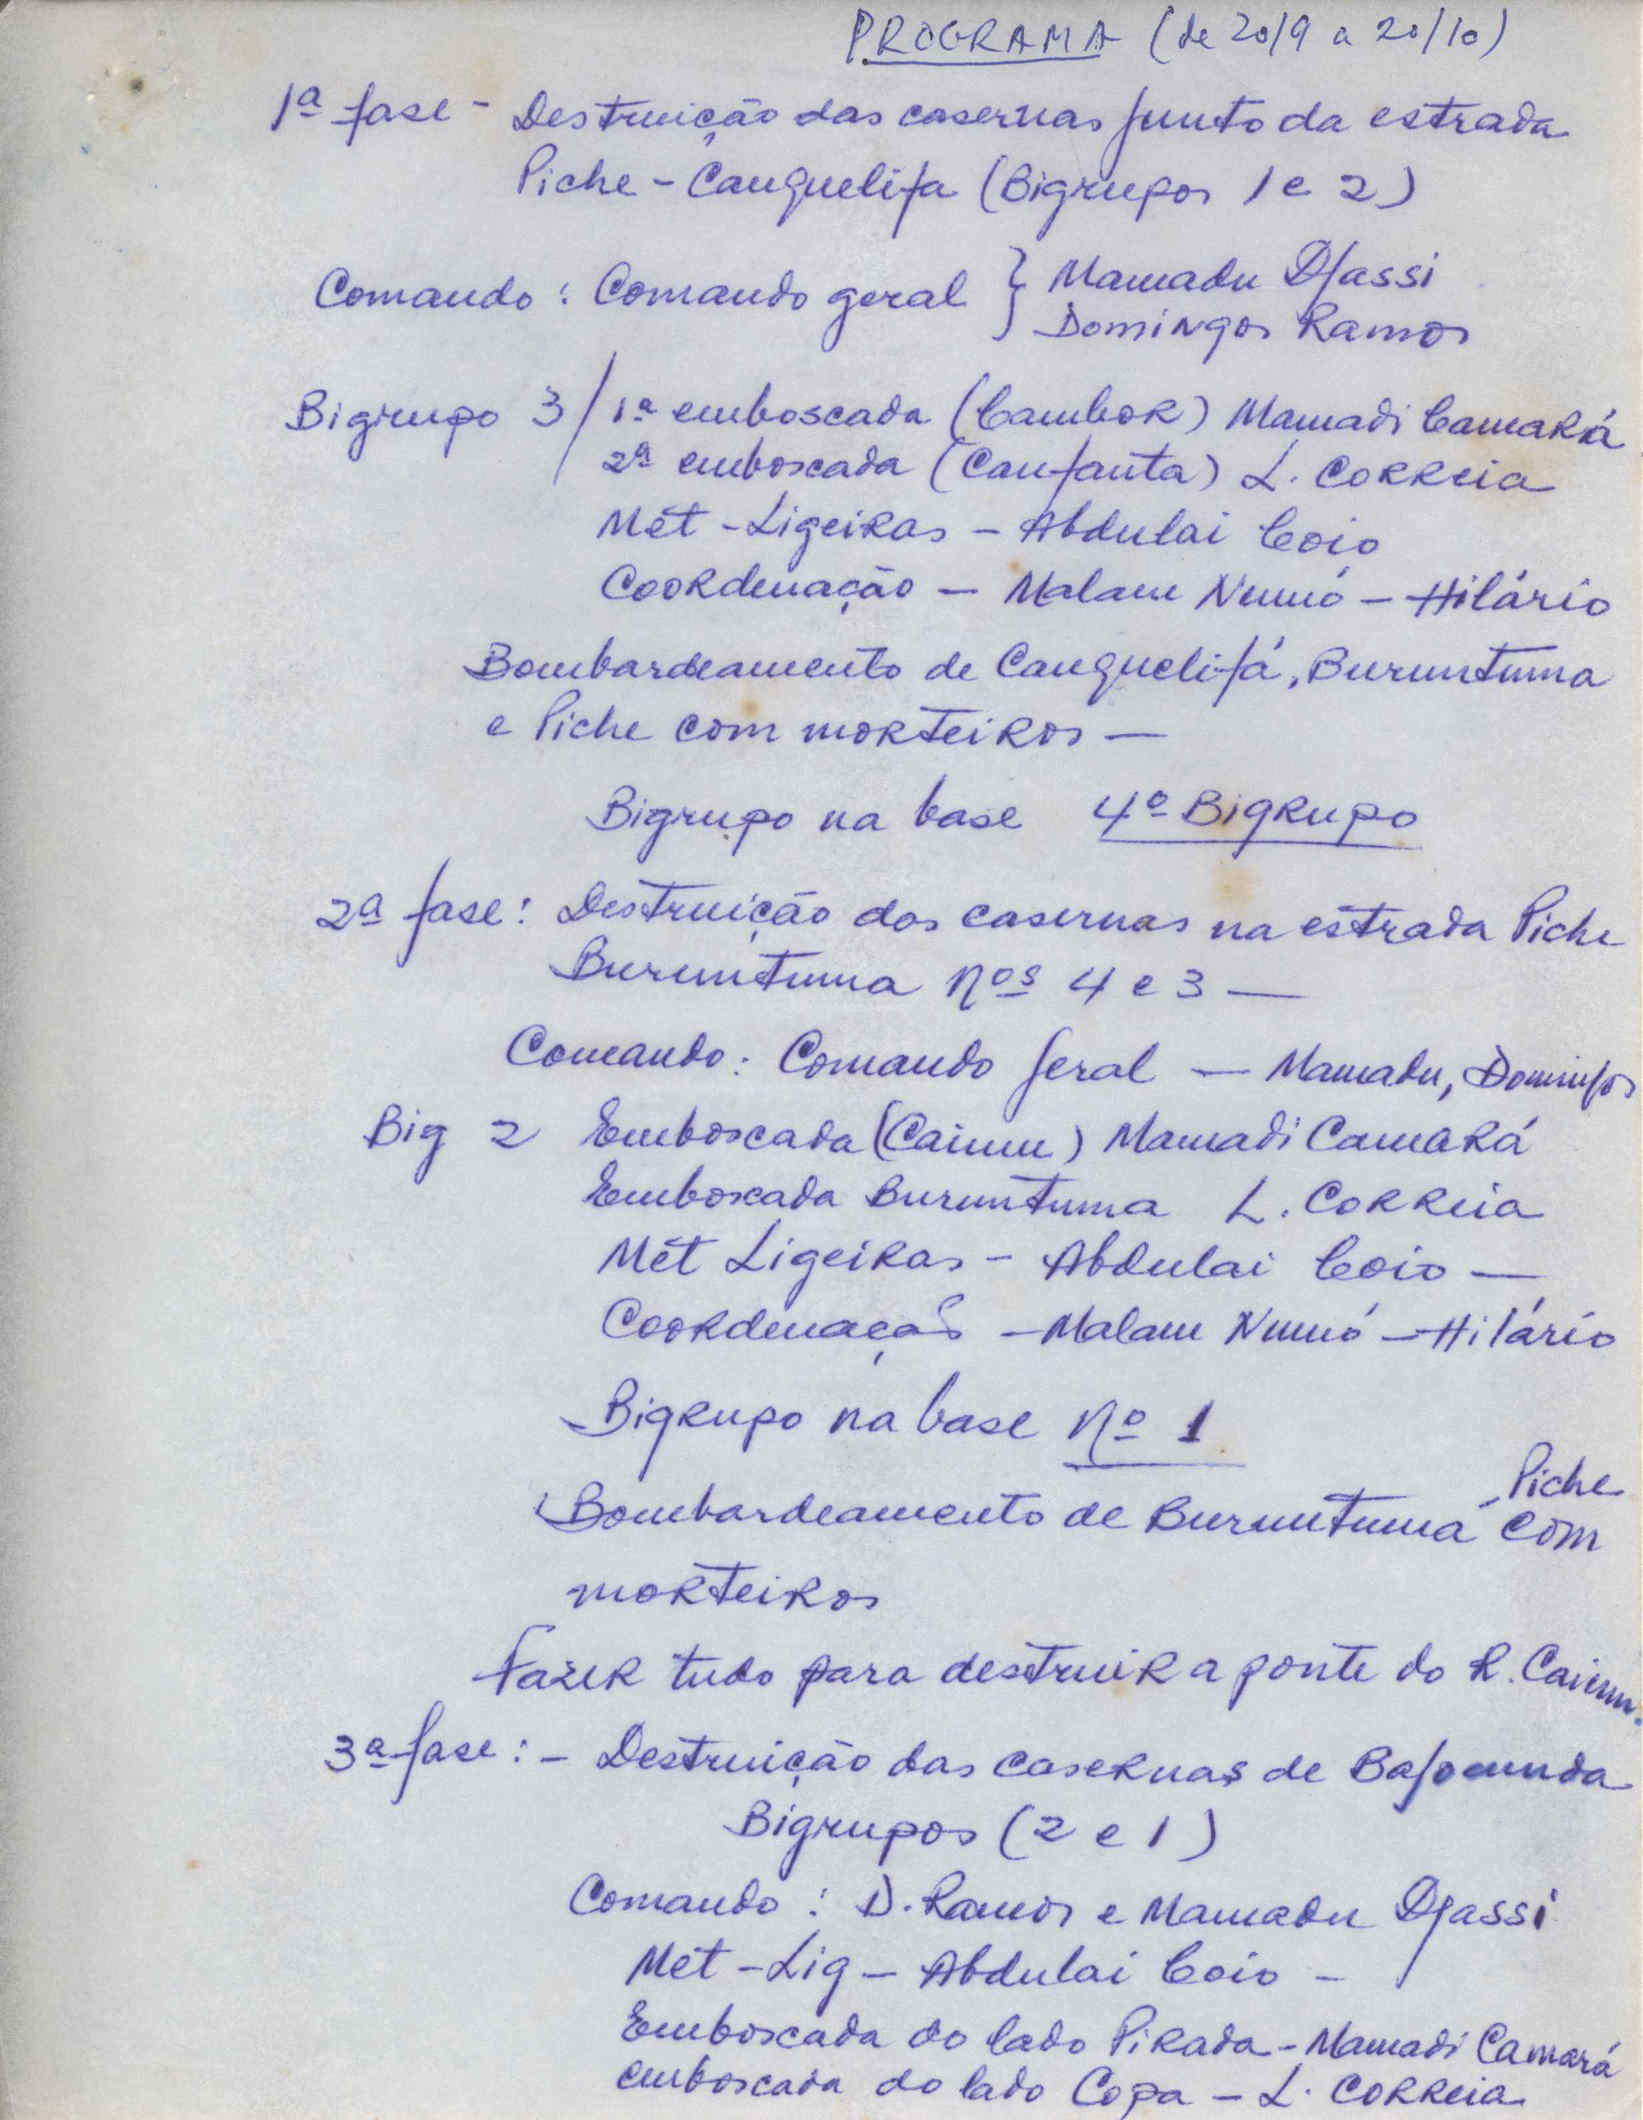 PROGRAMA (de 20/9 a 20/10)
1ª fase - Destruição das casernas junto da estrada
Piche - Canquelifa (Bigrupos 1 e 2)
Comando : Comando geral } Mamadu Djassi
Domingos Ramos
Bigrupo 3 / 1ª emboscada (Cambor) Mamadi Camará
2ª emboscada (Canfanta) L. Correia
Mét - Ligeiras - Abdulai Coio
Coordenação - Malam Numó - Hilário
Bombardeamento de Canquelifá, Buruntuma
e Piche com morteiros —
Bigrupo na base 4º Bigrupo
2ª fase : Destruição das casernas na estrada Piche
Buruntuma nºs 4 e 3 —
Comando : Comando geral — Mamadu, Domingos
Big 2 Emboscada (Caium) Mamadi Camará
Emboscada Buruntuma L. Correia
Mét Ligeiras - Abdulai Coio —
Coordenação - Malam Numó - Hilário
Bigrupo na base nº 1
Piche
Bombardeamento de Buruntuma com
morteiros
Fazer tudo para destruir a ponte do R. Caium.
3ª fase : - Destruição das casernas de Bajocunda
Bigrupos (2 e 1)
Comando : D. Ramos e Mamadu Djassi
Mét - Lig - Abdulai Coio -
Emboscada do lado Pirada - Mamadi Camará
emboscada do lado Copa - L. Correia